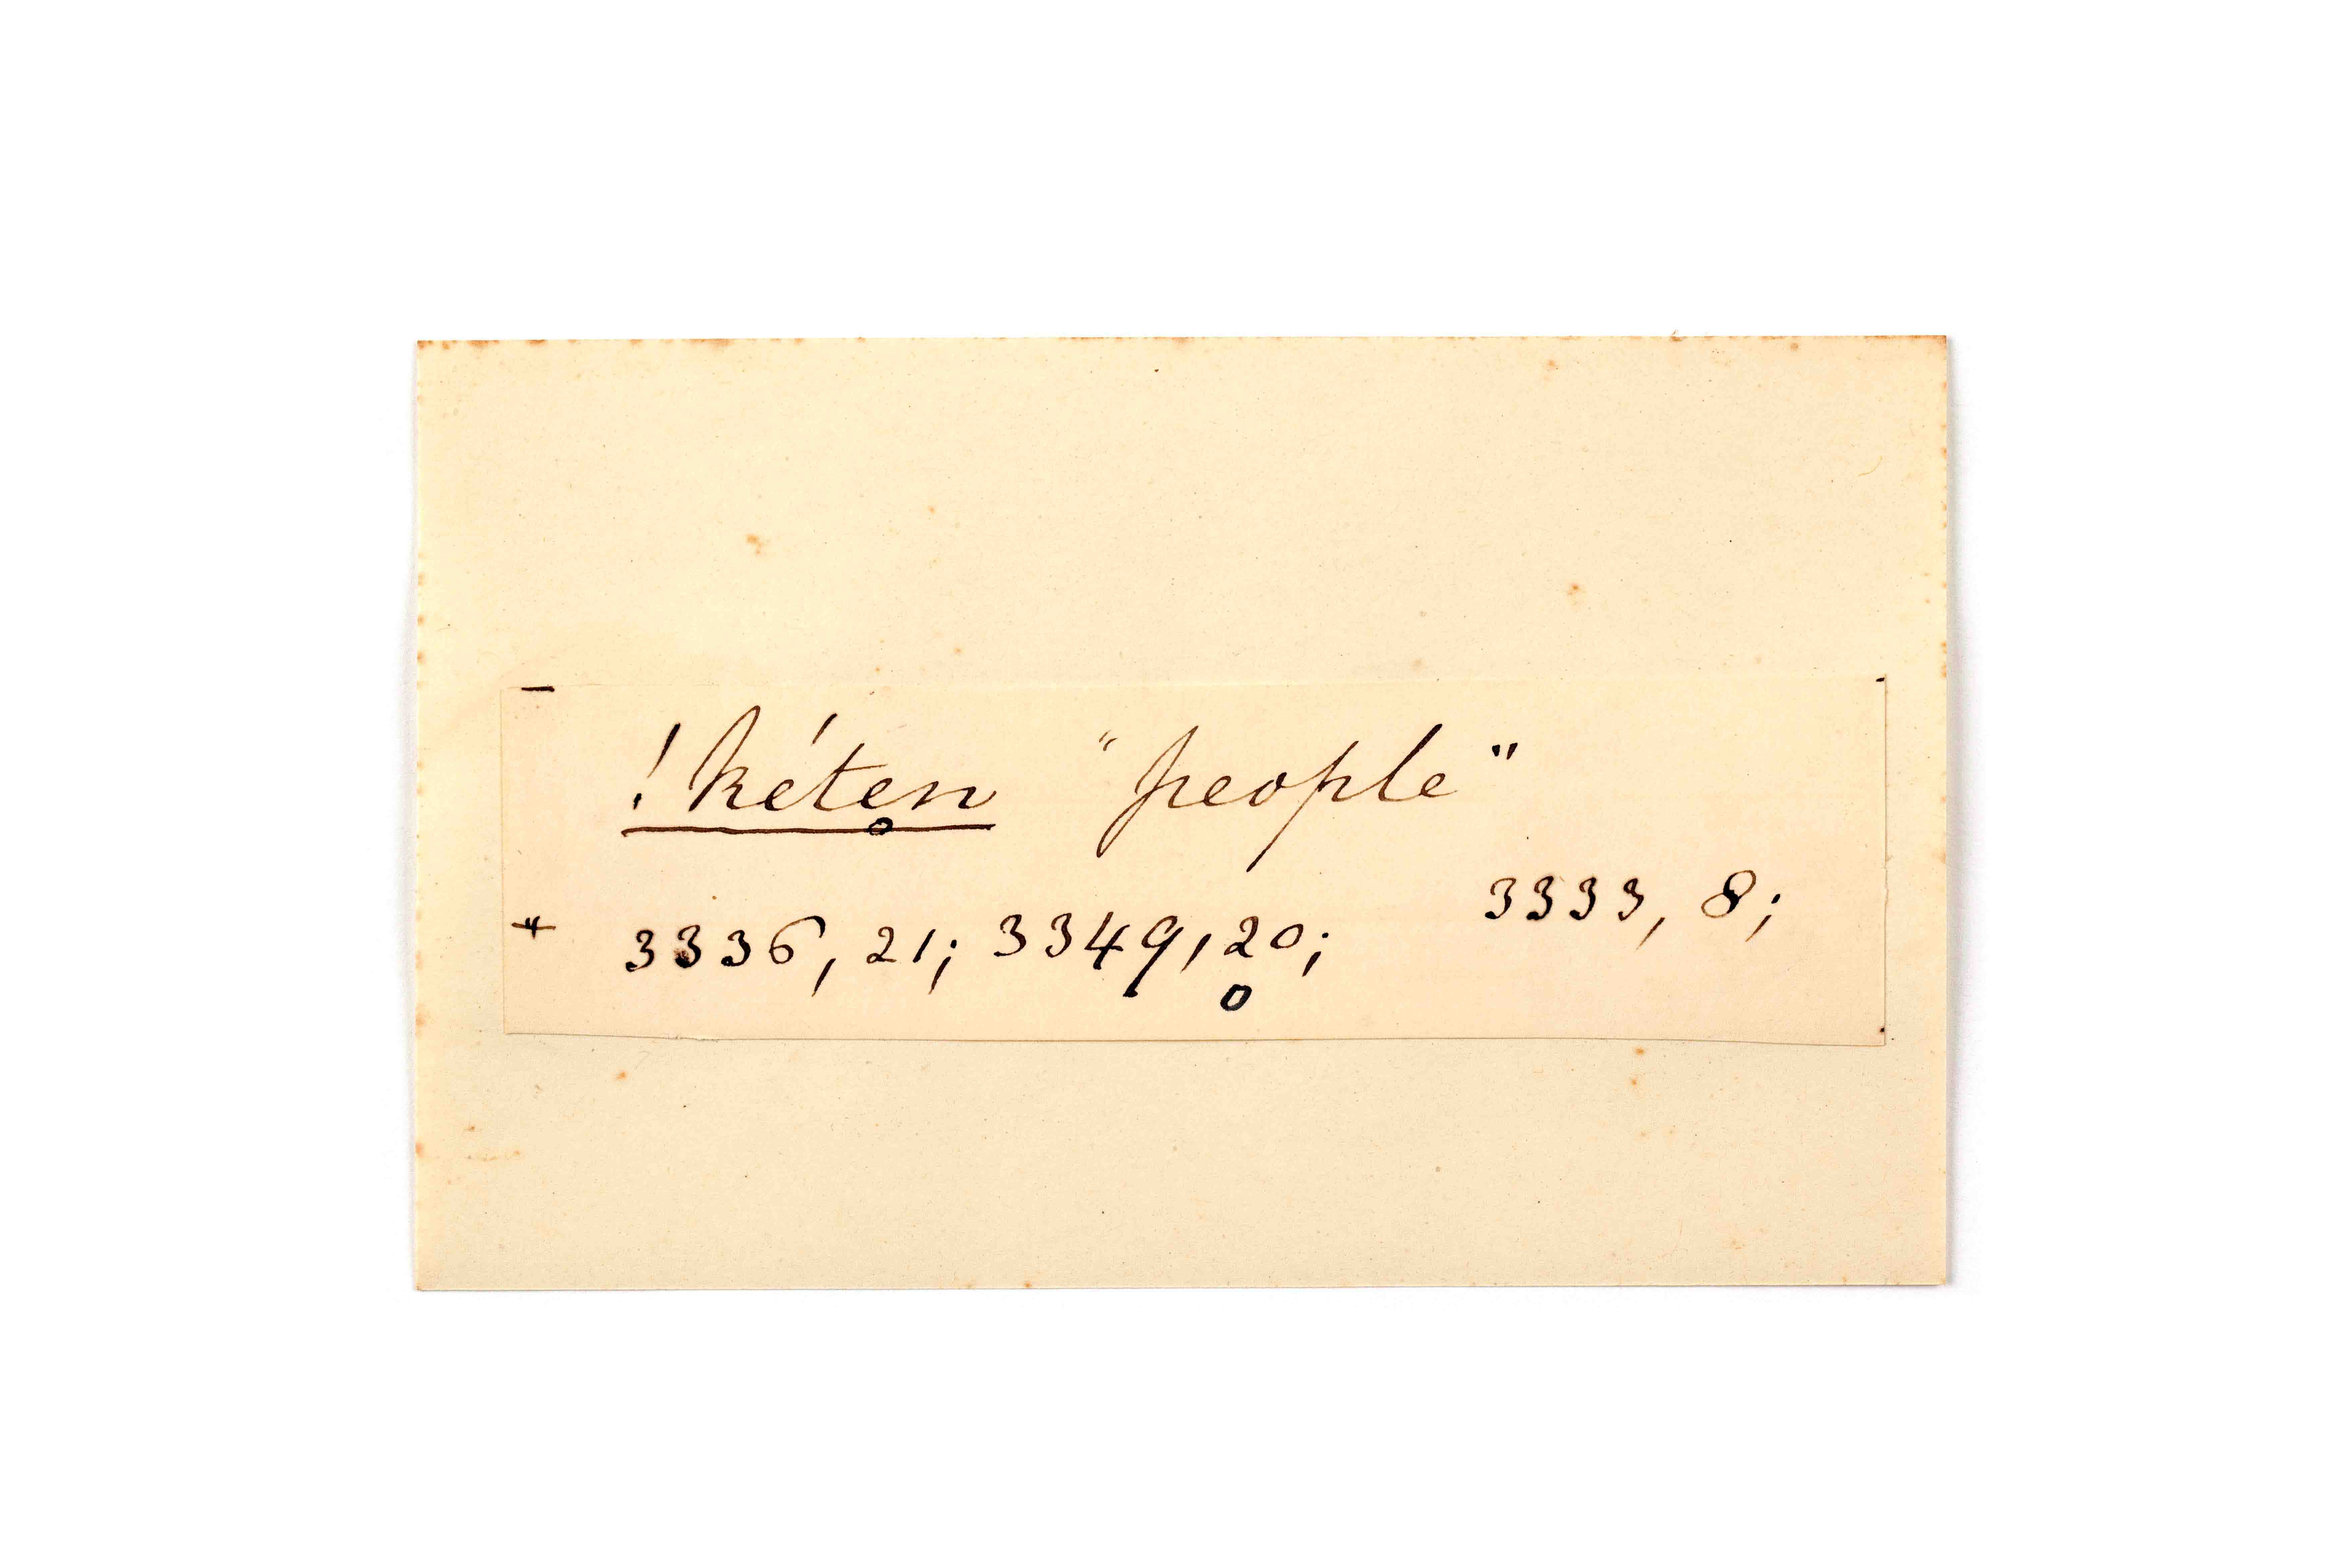 !kéte̥n "people"
3333, 8;
3336, 21; 3349, 20;